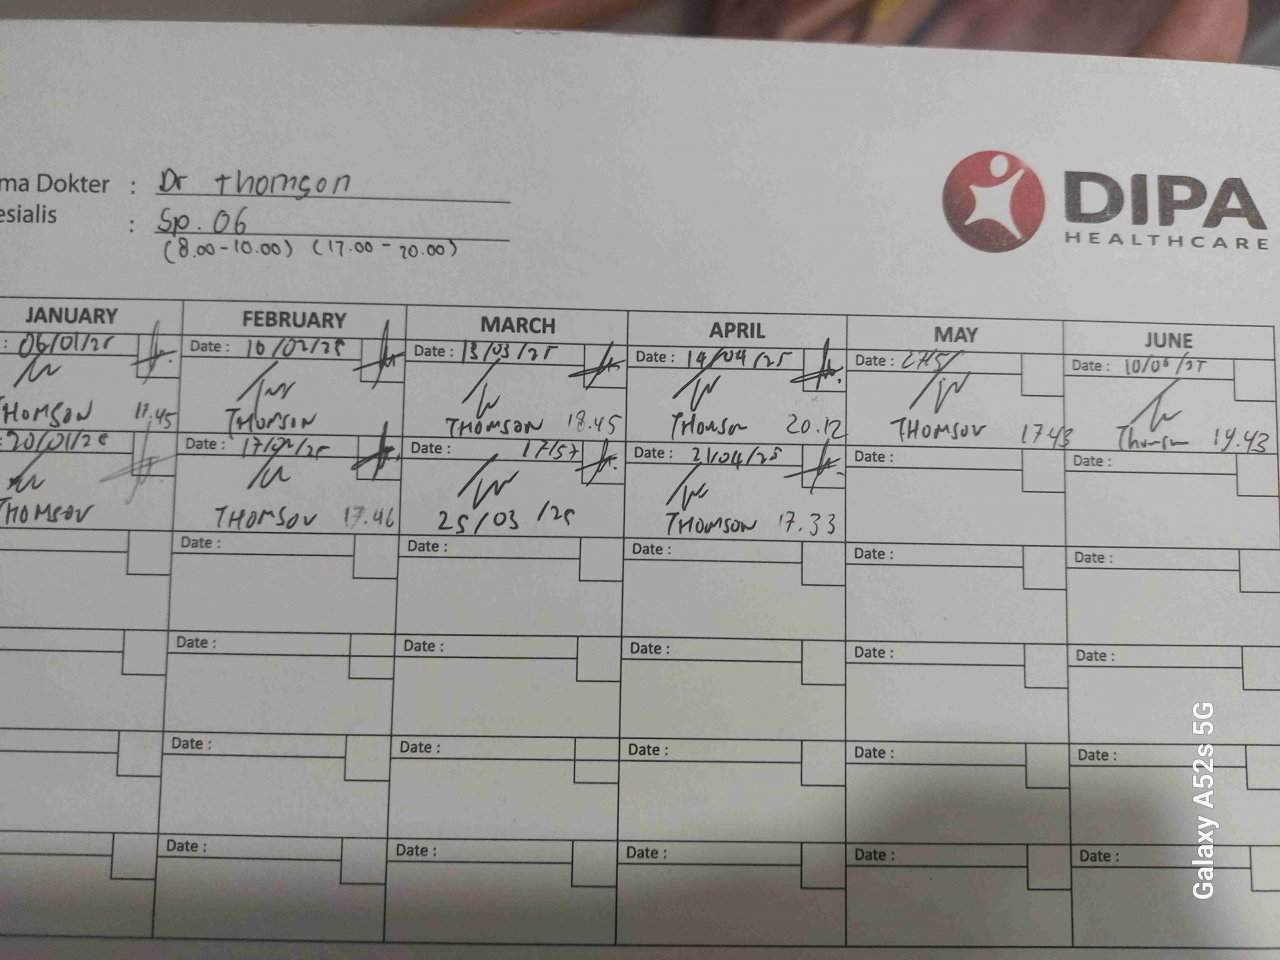 ma Dokter : Dr Thomson
esialis : Sp. OG
(8.00-10.00) (17.00-20.00)
DIPA
HEALTHCARE
JANUARY FEBRUARY MARCH APRIL MAY JUNE
: 06/01/25 Date : 10/02/25 Date : 13/03/25 Date : 14/04/25 Date : Date : 10/06/25
THOMSON 17.45 THOMSON THOMSON 18.45 Thomson 20.12 THOMSON 17.43 Thomson 19.43
: 20/01/25 Date : 17/02/25 Date : 17/57 Date : 21/04/25 Date : Date :
THOMSON THOMSON 17.46 25/03/25 THOMSON 17.33
Date : Date : Date : Date : Date :
Date : Date : Date : Date : Date :
Date : Date : Date : Date : Date :
Date : Date : Date : Date : Date :
Galaxy A52s 5G